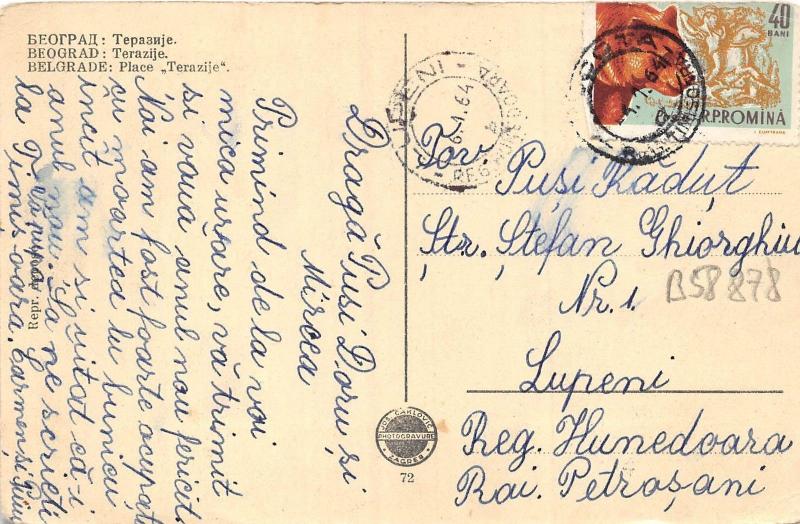 БЕОГРАД: Теразије.
BEOGRAD: Terazije.
BELGRADE: Place „Terazije“.
Dragă Pusi Doru și
Mircea
Primind de la voi
mica urare, vă trimit
si voua anul nou fericit.
Noi am fost foarte ocupati
cu moartea lu bunicu
incit am si uitat că-i
anul nou. Sa ne scrieti
la Timisoara. Carmen si
40
BANI
RPROMINA
LUPENI
6.-1.64
REG. HUNEDOARA
Tov. Pusi Raduț
Str. Ștefan Ghiorghiu
Nr. 1.
B58878
Lupeni
Reg. Hunedoara
Rai. Petroșani
JOS. ČAKLOVIĆ
PHOTOGRAVURE
ZAGREB
72